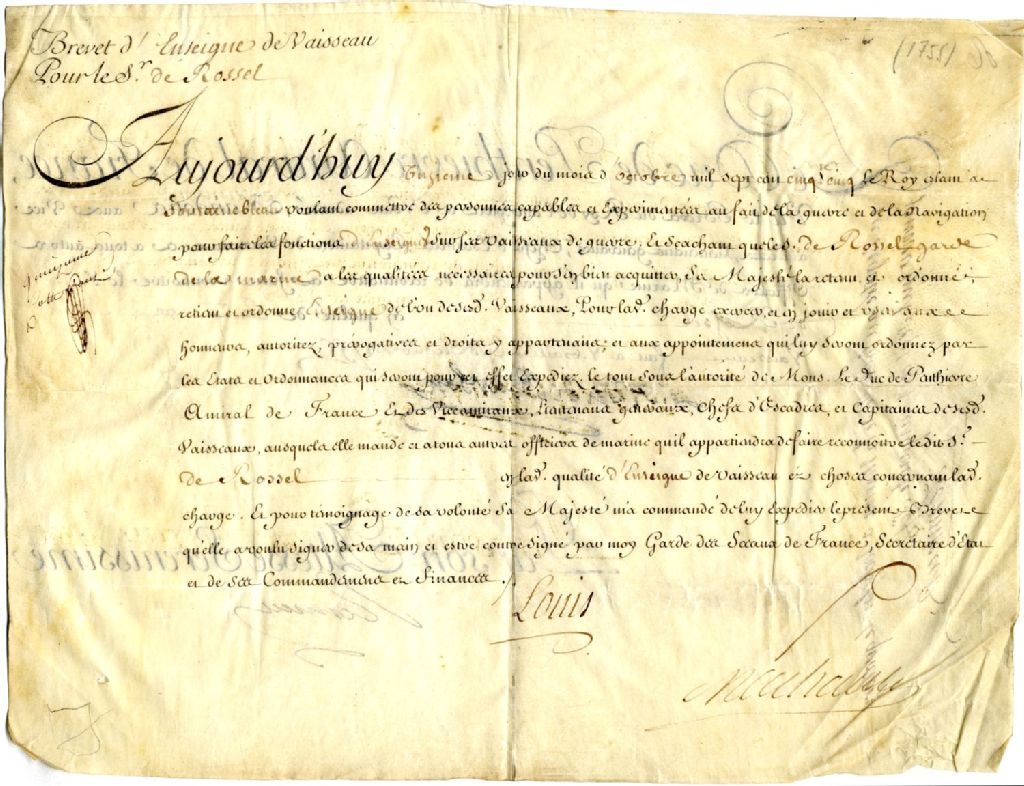 Brevet d'Enseigne de Vaisseau
Pour le Sr. de Rossel
(1755)
Aujourd'huy Unzieme jour du mois d'octobre mil sept cent cinqte. cinq Le Roy étant a
Fontainebleau voulant commettre des personnes capables et Experimentées au fait de la guerre et de la Navigation
pour faire les fonctions d'Enseignes Sur ses Vaisseaux de guerre, Et Scachant que le s. de Rossel garde
de la marine a les qualitées necessaires pour s'en bien acquitter, Sa Majesté la retenu et ordonné,
retient et ordonne Enseigne de l'un de sesd. Vaisseaux, Pour lad. charge exercer, et en jouir et user aux
honneurs, autoritez, prerogatives et droits y appartenans, et aux appointemens qui luy seront ordonnez par
les Etats et Ordonnances qui seront pour cet effet Expediez, le tout sous l'autorité de Mons. Le Duc de Penthievre
Amiral de France Et des Viceamiraux, Lieutenans generaux, Chefs d'Escadres, et Capitaines de sesd.
Vaisseaux, ausquels elle mande et a tous autres officiers de marine qu'il appartiendra de faire reconnoitre ledit Sr.
de Rossel en lad. qualité d'Enseigne de Vaisseau ez choses concernant lad.
charge. Et pour temoignage de sa volonté Sa Majesté m'a commandé de luy Expedier le present Brevet
qu'elle a voulu signer de sa main et estre contresigné par moy Garde des Sceaux de France, Secretaire d'Etat
et de ses Commandemens et Finances.
Louis
Machault